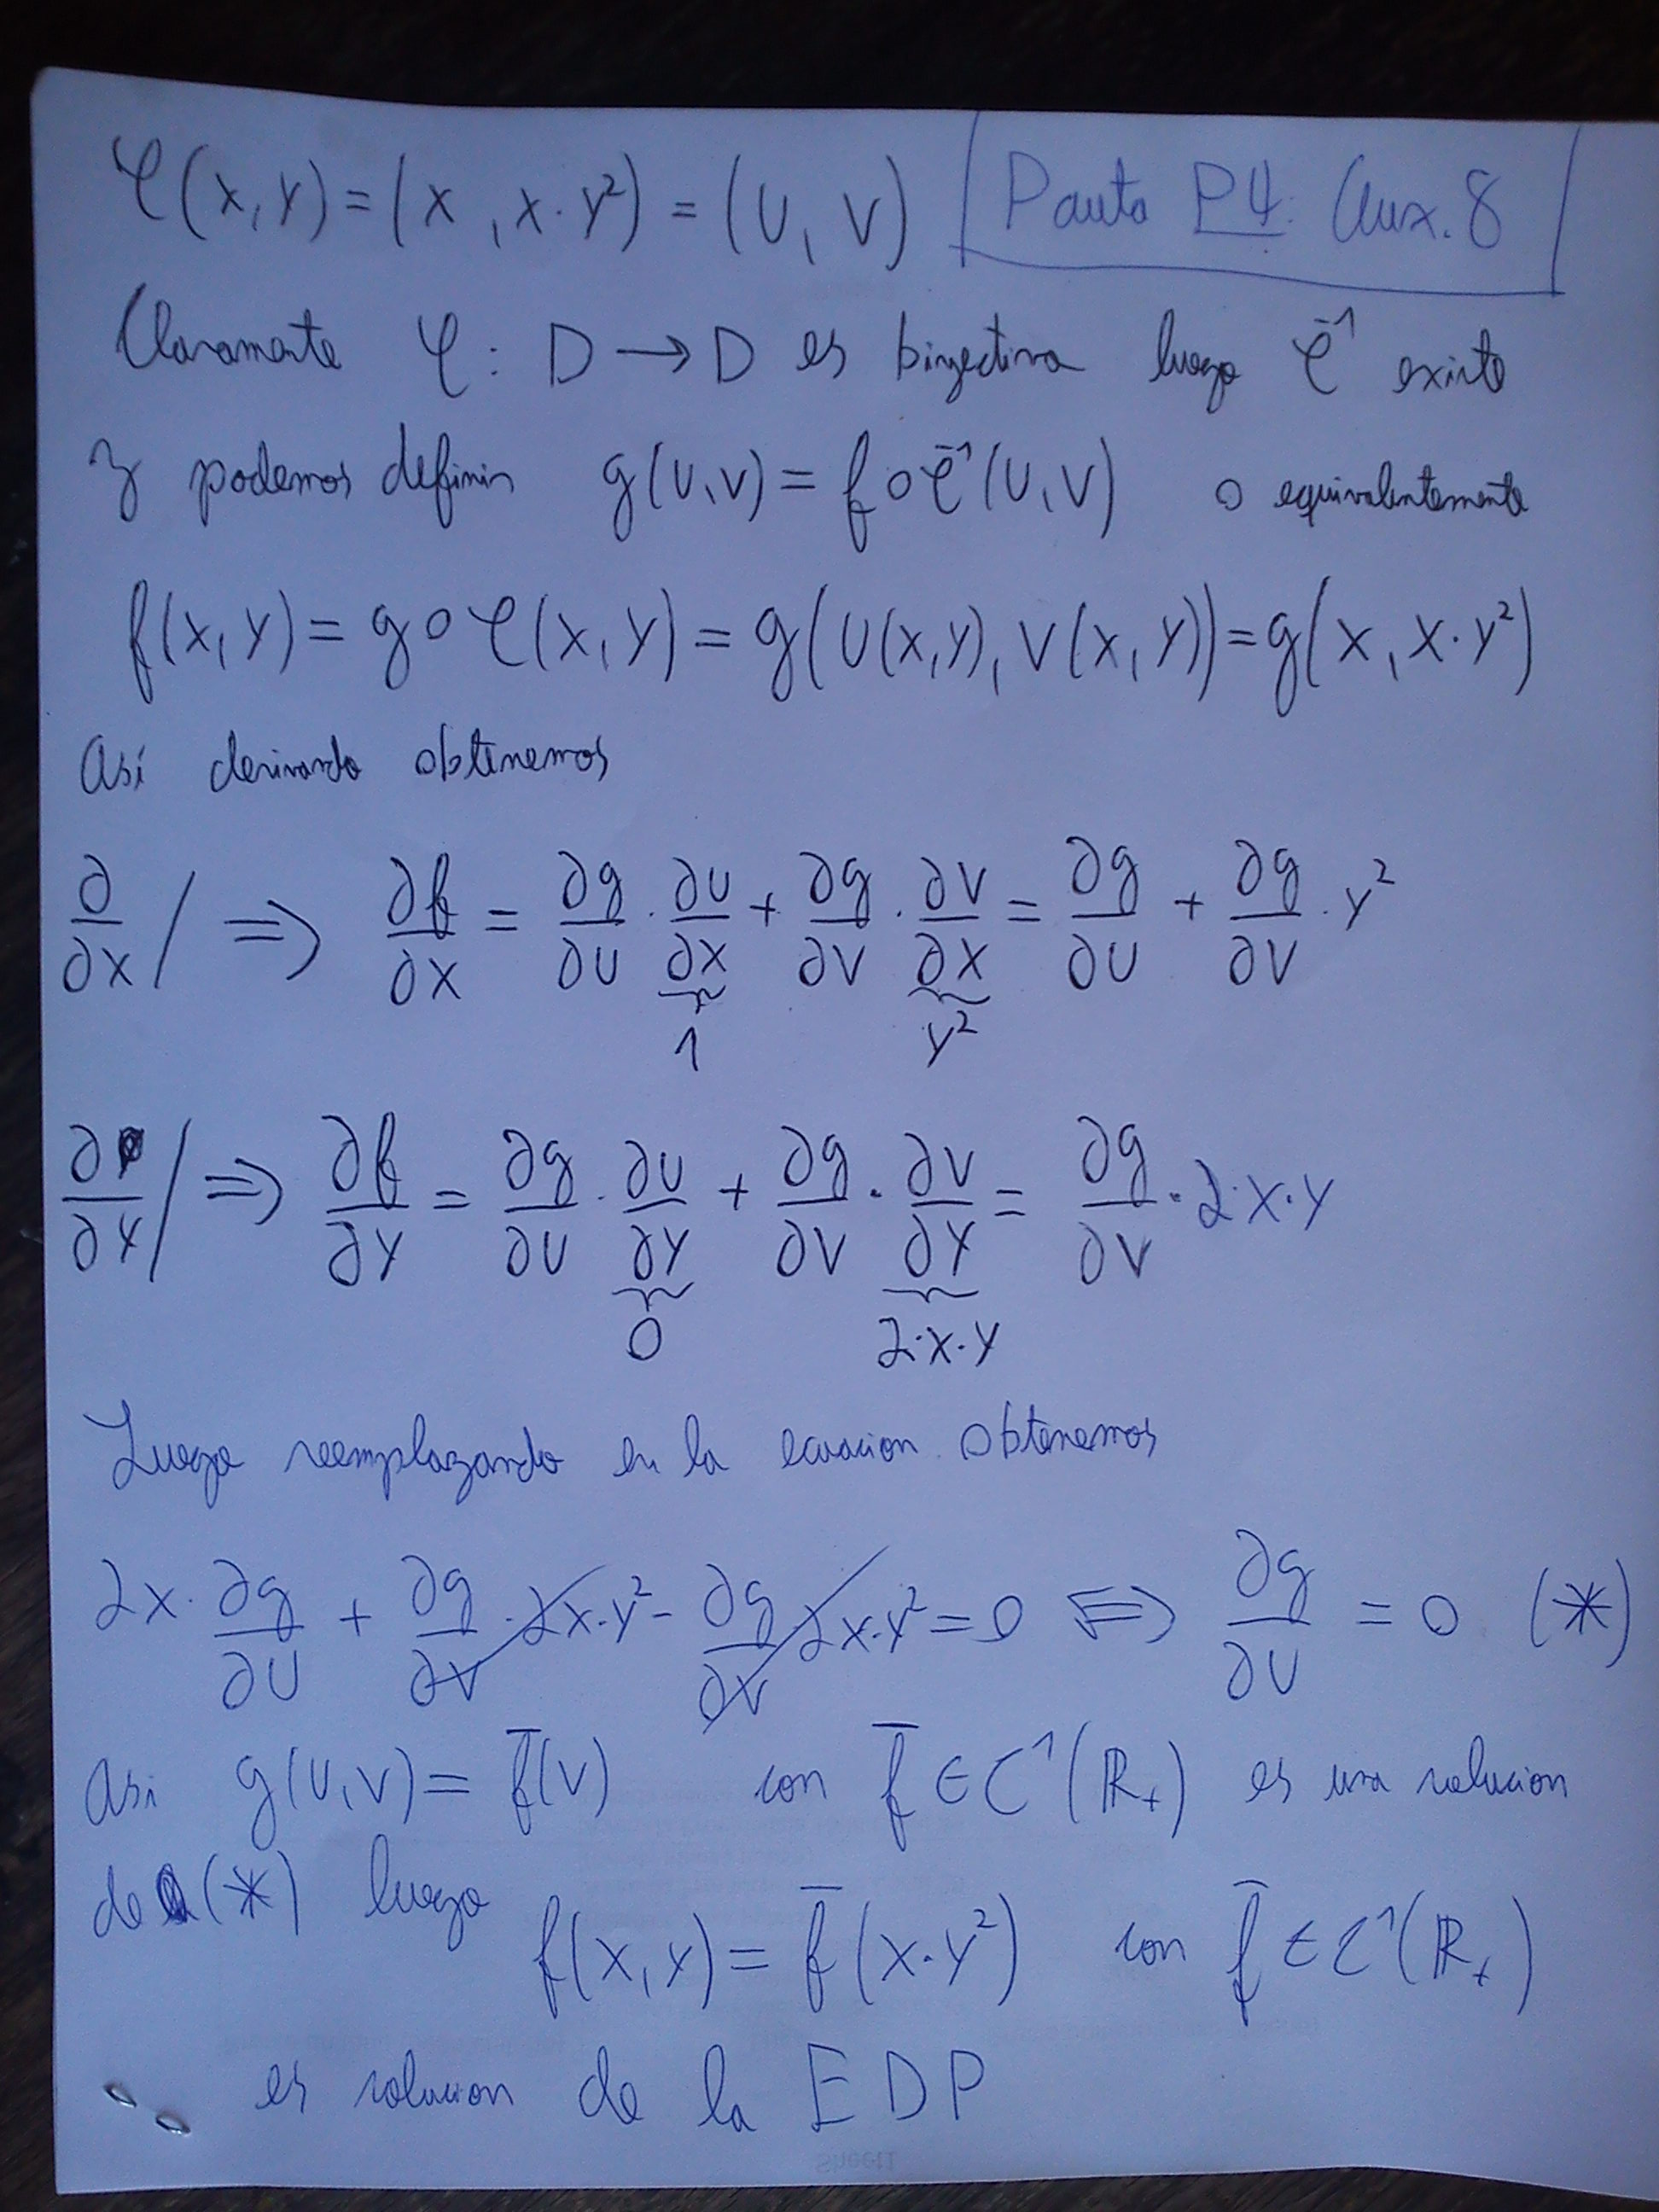 φ(x,y) = (x, x·y²) = (U, V) Pauta P4: Aux. 8
Claramente φ: D → D es biyectiva luego φ⁻¹ existe
y podemos definir g(U,V) = f∘φ⁻¹(U,V) o equivalentemente
f(x,y) = g∘φ(x,y) = g(U(x,y), V(x,y)) = g(x, x·y²)
Así derivando obtenemos
∂/∂x / ⇒ ∂f/∂x = ∂g/∂U · ∂U/∂x + ∂g/∂V · ∂V/∂x = ∂g/∂U + ∂g/∂V · y²
1 y²
∂/∂y / ⇒ ∂f/∂y = ∂g/∂U · ∂U/∂y + ∂g/∂V · ∂V/∂y = ∂g/∂V · 2·x·y
0 2·x·y
Luego reemplazando en la ecuacion obtenemos
2x · ∂g/∂U + ∂g/∂V · 2x·y² - ∂g/∂V 2x·y² = 0 ⇔ ∂g/∂U = 0 (*)
Asi g(U,V) = f̄(V) con f̄ ∈ C¹(ℝ₊) es una solucion
de (*) luego f(x,y) = f̄(x·y²) con f̄ ∈ C¹(ℝ₊)
es solucion de la EDP